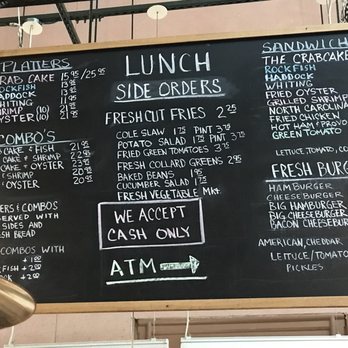 PLATTERS
CRAB CAKE 15.95/25.95
ROCKFISH
HADDOCK
WHITING
SHRIMP (10)
OYSTER (10) 21
COMBO'S
CAKE & FISH 21.95
CAKE & SHRIMP 22.95
CAKE & OYSTER 23.95
& SHRIMP
& OYSTER 20.95
& COMBOS
SERVED WITH
SIDES AND
BREAD
COMBOS WITH
LUNCH
SIDE ORDERS
FRESH CUT FRIES 2.25
COLE SLAW 1.75 PINT 3.75
POTATO SALAD 1.75 PINT 3.75
FRIED GREEN TOMATOES 3.75
FRESH COLLARD GREENS 2.95
BAKED BEANS 1.95
CUCUMBER SALAD 1.75
FRESH VEGETABLE Mkt.
WE ACCEPT
CASH ONLY
ATM
SANDWICH
THE CRABCAKE
ROCKFISH
HADDOCK
WHITING
FRIED OYSTER
GRILLED SHRIMP
NORTH CAROLINA
FRIED CHICKEN
HOT HAM & PROVO
GREEN TOMATO
LETTUCE, TOMATO,
FRESH BURG
HAMBURGER
CHEESEBURGER
BIG HAMBURGER
BIG CHEESEBURGER
BACON CHEESEBURGER
AMERICAN, CHEDDAR
LETTUCE/TOMATO
PICKLES